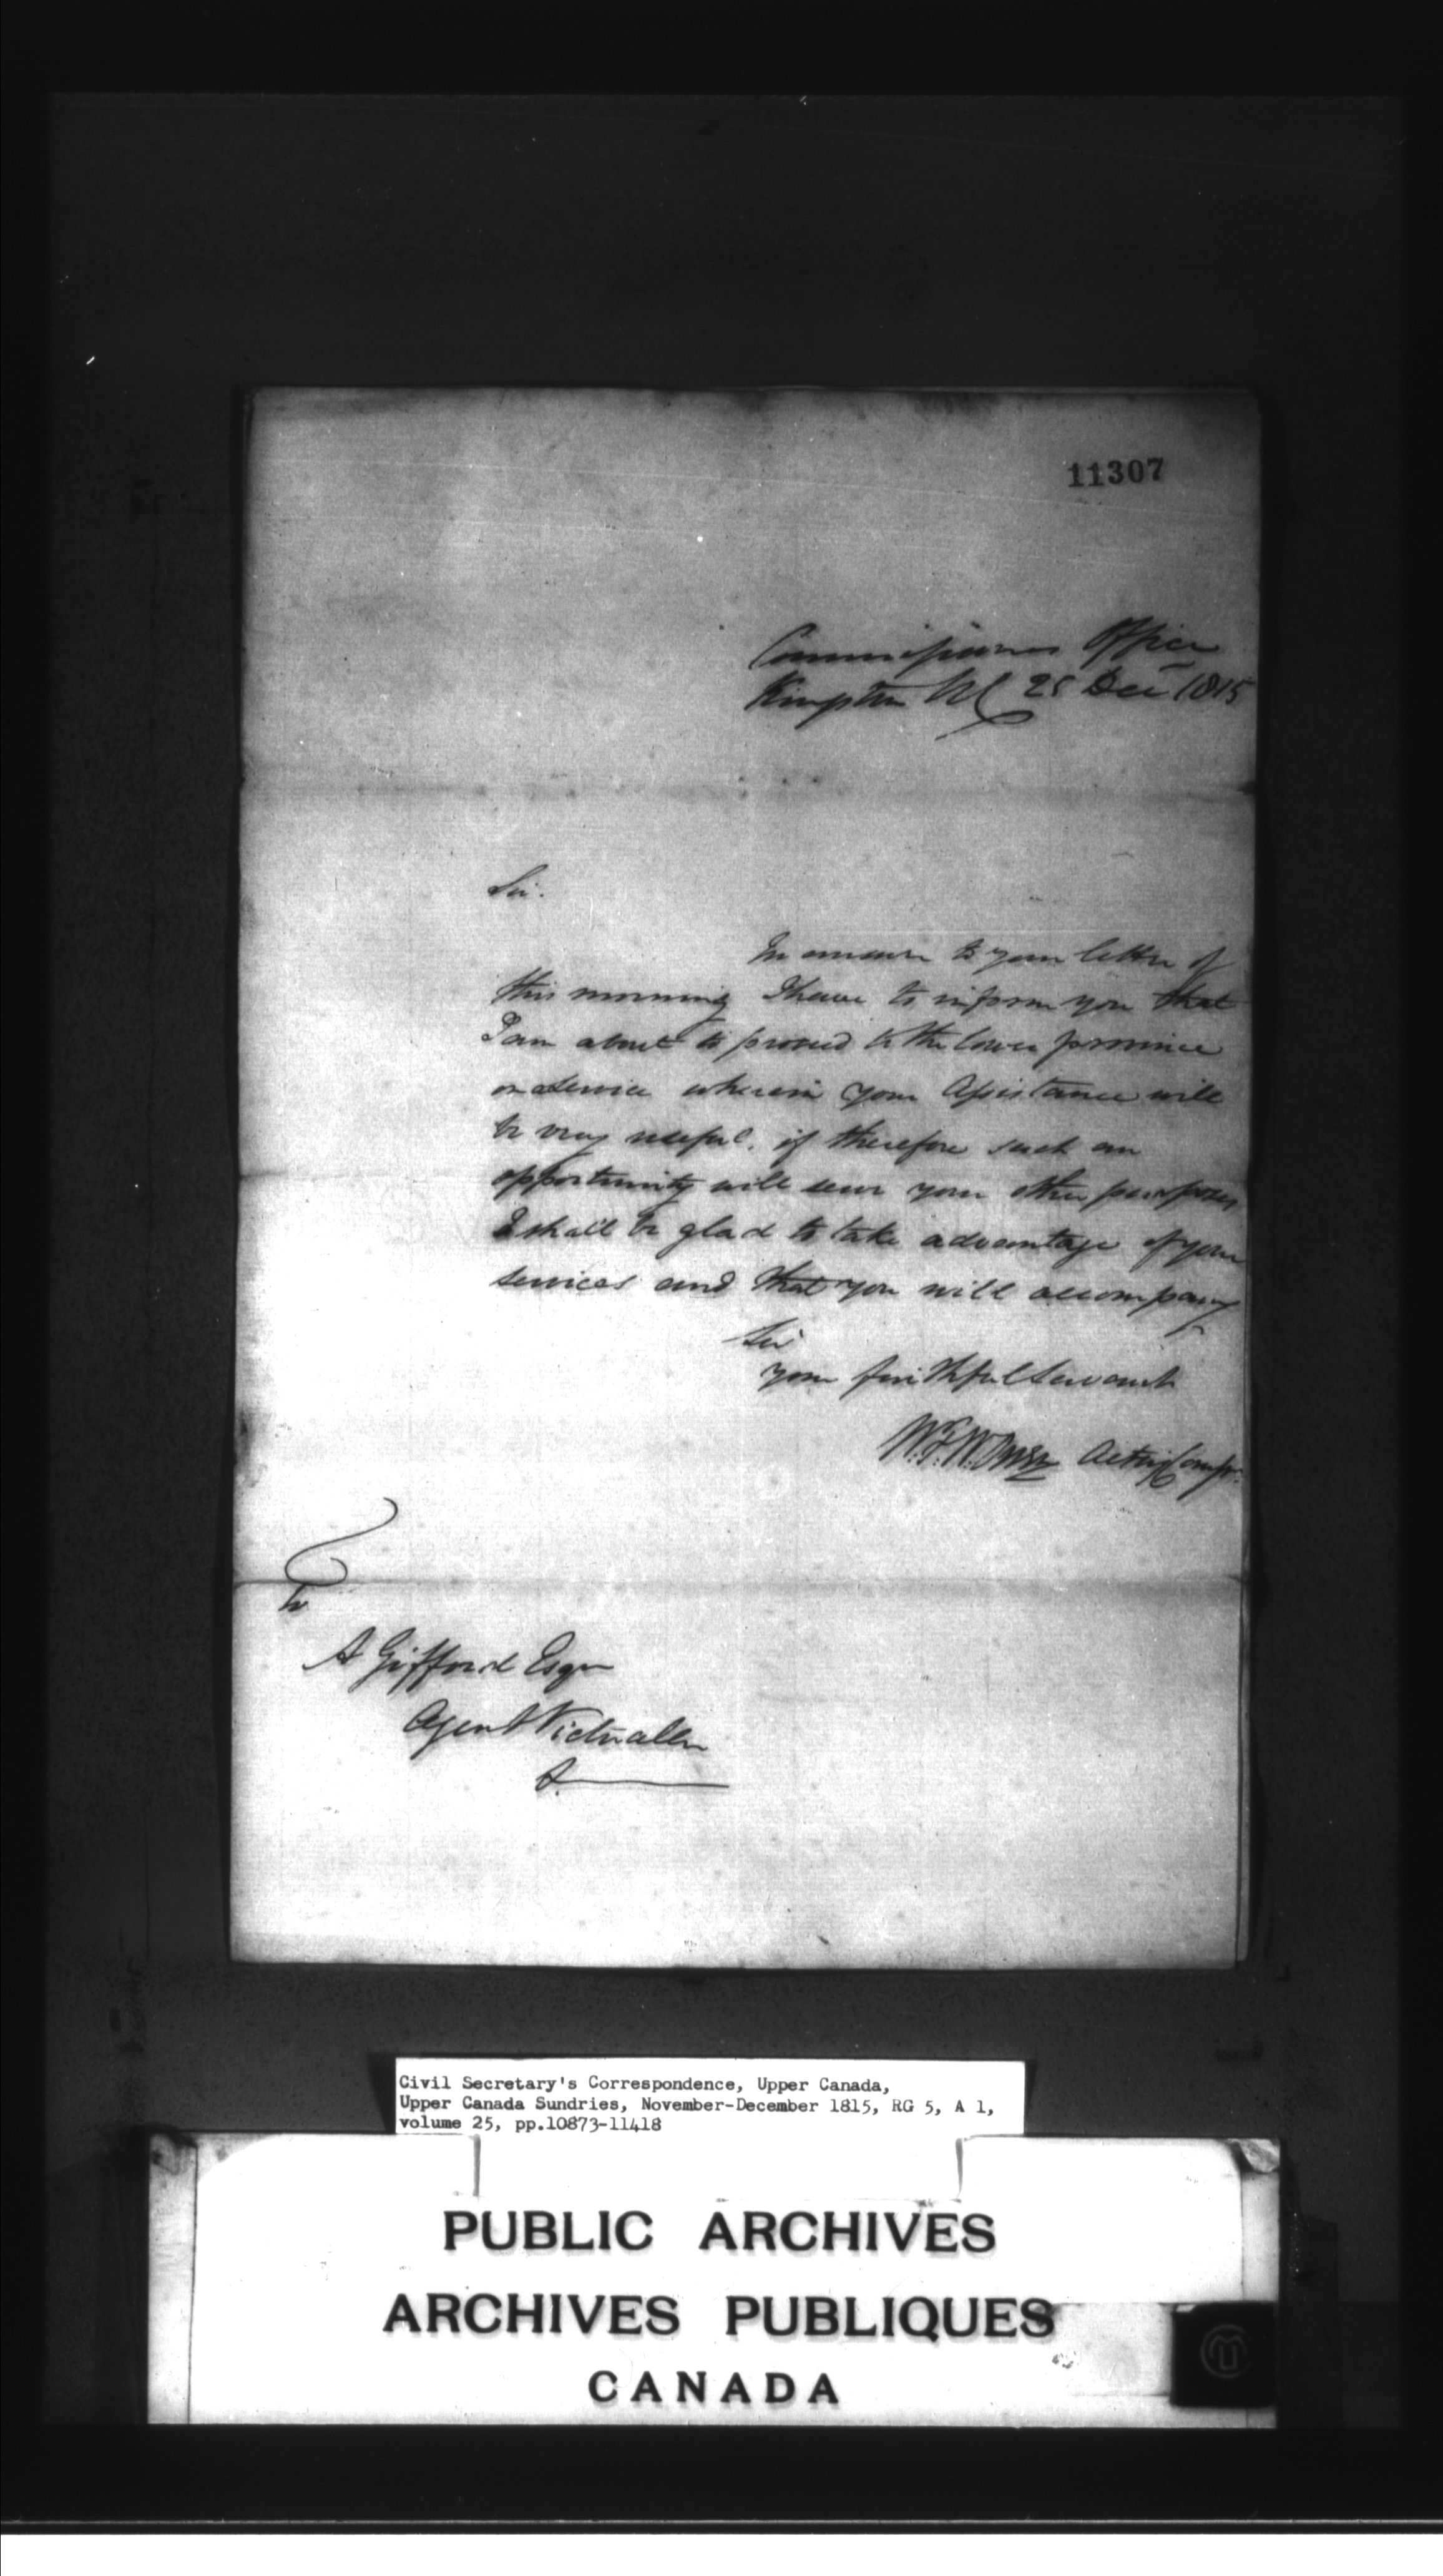 11307
Commissioners Office
Kingston UC 25 Decr 1815
Sir.
In answer to your letter of
this morning I have to inform you that
I am about to proceed to the lower province
on service wherein your Assistance will
be very useful. if therefore such an
opportunity will serve your other purposes,
I shall be glad to take advantage of your
services and that you will accompany
Sir
your faithful Servant
Acting Commr.
To
A Gifford Esqr
Agent Victualler
&
Civil Secretary's Correspondence, Upper Canada,
Upper Canada Sundries, November-December 1815, RG 5, A 1,
volume 25, pp.10873-11418
PUBLIC ARCHIVES
ARCHIVES PUBLIQUES
CANADA